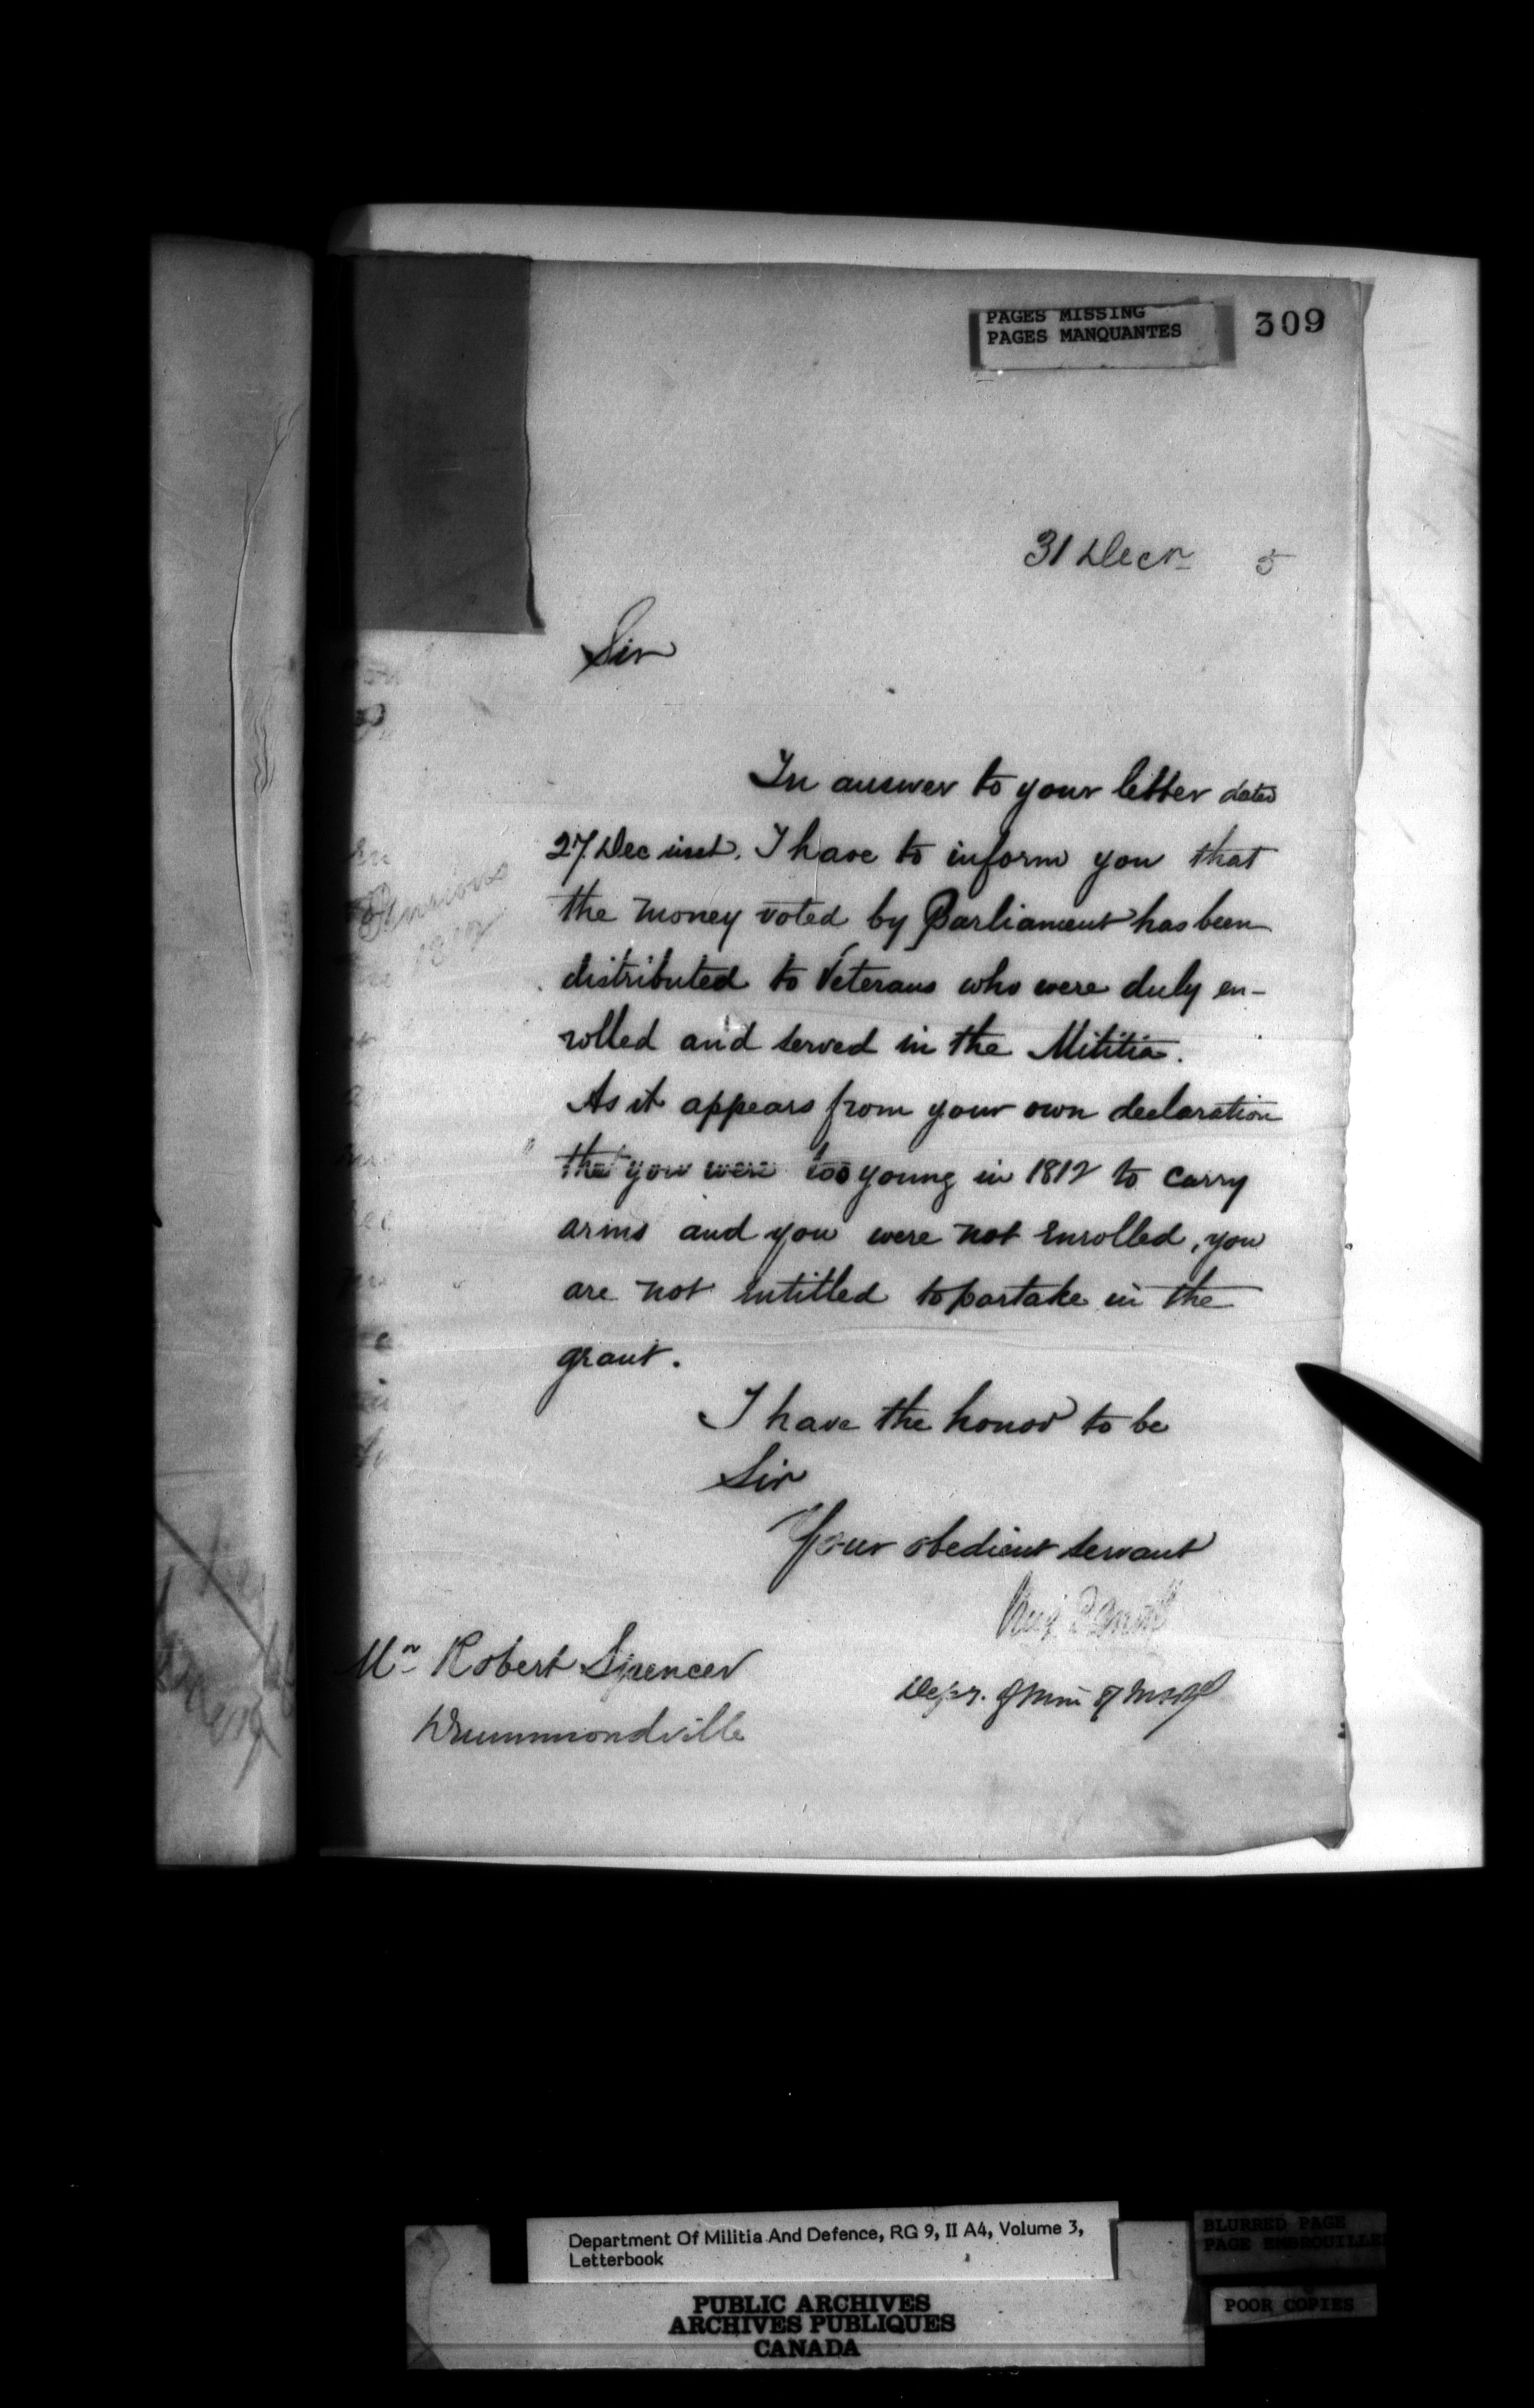 PAGES MISSING
PAGES MANQUANTES
309
31 Decr 5
Sir
In answer to your letter dated
27 Dec inst. I have to inform you that
the money voted by Parliament has been
distributed to Veterans who were duly en-
rolled and served in the Militia.
As it appears from your own declaration
that you were too young in 1812 to carry
arms and you were not enrolled, you
are not intitled to partake in the
grant.
I have the honor to be
Sir
Your obedient servant
Mr Robert Spencer
Drummondville
Pensions
1812
Department Of Militia And Defence, RG 9, II A4, Volume 3,
Letterbook
PUBLIC ARCHIVES
ARCHIVES PUBLIQUES
CANADA
BLURRED PAGE
PAGE EMBROUILLE
POOR COPIES